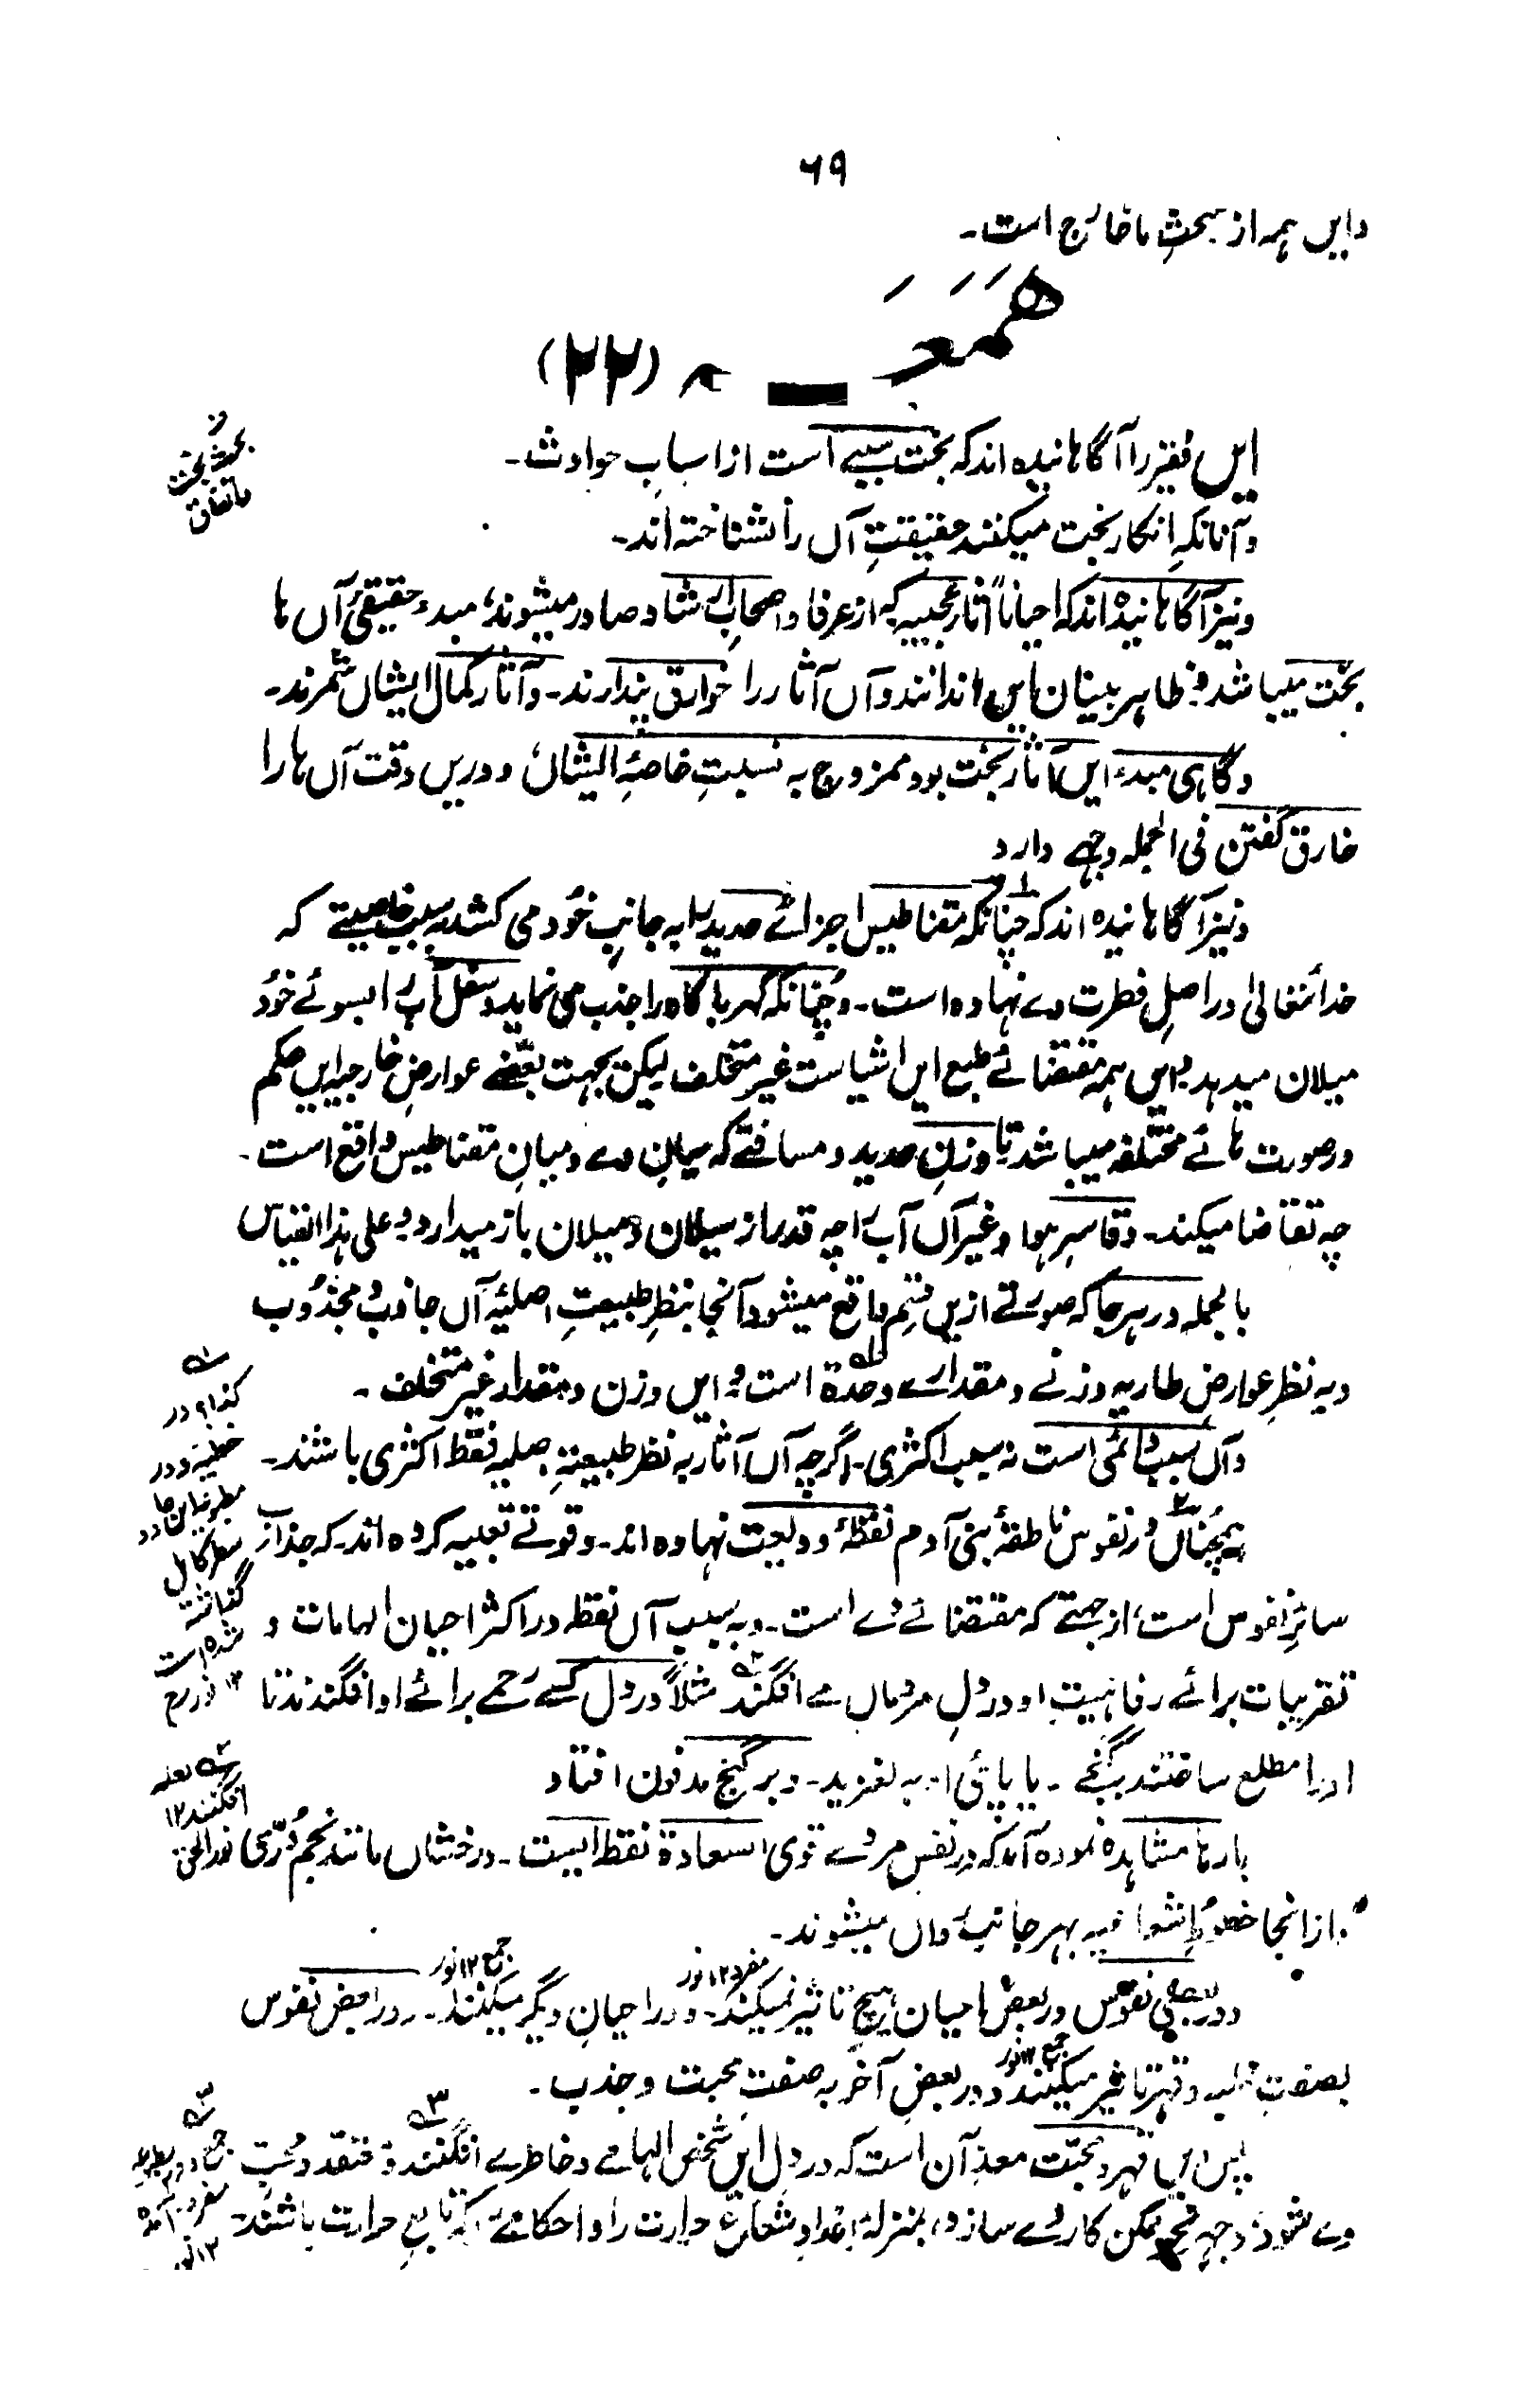 ۶۹
وایں ہمہ از مبحثِ ما خارج است۔
ھَمعَـــہ (۲۲)
ایں فقیر را آگاہانیدہ اند کہ بخت سببے است از اسبابِ حوادث۔
بحث بخت
واتفاق
وآنانکہ انکار بخت میکنند حقیقتِ آں را نشناختہ اند۔
ونیز آگاہانیدہ اند کہ احیاناً آثارِ عجیبہ کہ از عرفا واصحابِ ارشاد صادر میشوند، مبدءِ حقیقیِ آں ہا
بخت میباشد و ظاہر بینان ایں را ندانند وآں آثار را خوارق پندارند۔ وآثارِ کمال ایشاں شمرند۔
وگاہی مبدء ایں آثار بخت بود ممزوج بہ نسبتِ خاصۂ ایشاں، ودریں وقت آں ہا را
خارق گفتن فی الجملہ وجہے دارد
ونیز آگاہانیدہ اند کہ چنانکہ مقناطیس اجزائے حدید را بہ جانبِ خود می کشد بہ سبب خاصیتے کہ
خدائتعالیٰ در اصلِ فطرت وے نہادہ است۔ وچنانکہ کہربا کاہ را جذب می نماید وسفل آب را بسوئے خود
میلان میدہد وایں ہمہ مقتضائے طبع ایں اشیاست غیر متخلف لیکن بجہت بعضے عوارضِ خارجیہ ایں حکم
در صورت ہائے مختلفہ میباشد تا وزنِ حدید ومسافتے کہ میانِ وے ومیانِ مقناطیس واقع است۔
چہ تقاضا میکند۔ وقاسرِ ہوا وغیر آں آب را چہ قدر از سیلان ومیلان باز میدارد وعلی ہذا القیاس
بالجملہ در ہر جا کہ صورتے ازیں قسم واقع میشود آنجا بنظرِ طبیعتِ اصلیۂ آں جاذب و مجذوب
وبہ نظرِ عوارضِ طاریہ وزنے ومقدارے وحدۃ است وایں وزن ومقدار غیر متخلف۔
وآں سبب دائمی است نہ سبب اکثری۔ اگرچہ آں آثار بہ نظر طبیعتِ اصلیہ فقط اکثری باشند۔
ہمچناں در نفوس ناطقۂ بنی آدم نقطۂ ودیعت نہادہ اند۔ وقوتے تعبیہ کردہ اند۔ کہ جذاب
سائرِ نفوس است از جہتے کہ مقتضائے وے است۔ وبہ سبب آں نقطہ در اکثر احیان الہامات و
تقریبات برائے رفاہیتِ او در دلِ مردماں مے افگند مثلاً در دل کسے رحمے برائے او افگندند تا
او را مطلع ساختند بگنجے۔ یا پائی او بہ لغزید۔ وبر گنج مدفون افتاد
لعلہ
افگنند ۱۲
بارہا مشاہدہ نمودہ آمد کہ در نفس مردے قوی السعادۃ نقطہ ایست۔ درخشاں مانند نجم دُرّی
نور الحق
واز انجا خطوطِ شعاعیہ بہر جانب رواں میشوند۔
ودر بعض نفوس در بعض احیان ہیچ تاثیر نمیکند۔ ودر احیانِ دیگر میکنند۔ ودر بعض نفوس
مفرد ۱۲ نور
جمع ۱۲ نور
بصفتِ غلبہ وقہر تاثیر میکنند ودر بعضِ آخر بہ صفتِ محبت وجذب۔
جمع ۱۲ نور
پس ایں قہر ومحبّت معدِ آن است کہ در دل ایں شخص الہامے وخاطرے افگنند و معتقد ومحبِ
وے شود وجہ نحو ممکن کار وے سازد، بمنزلۂ اعدادِ شعاع حرارت را واحکامے کہ تابعِ حرارت باشند۔